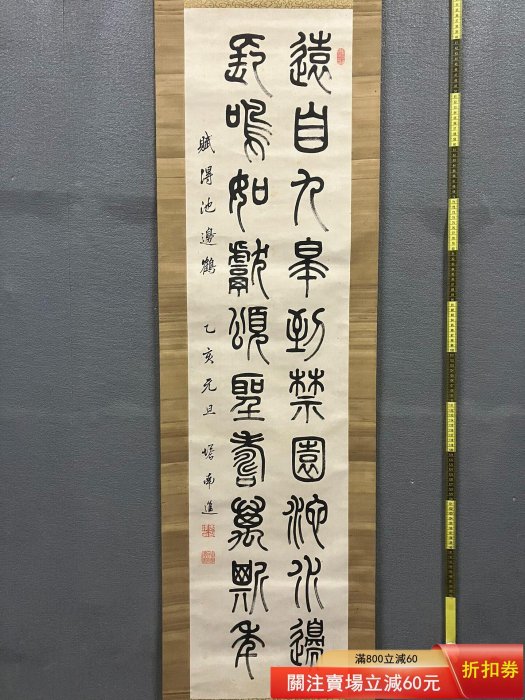 遠自九皋到禁園池水邊
鳴如獻頌聖壽萬斯年
賦得池邊鶴 乙亥元旦 南
滿800立減60
關注賣場立減60元
折扣券